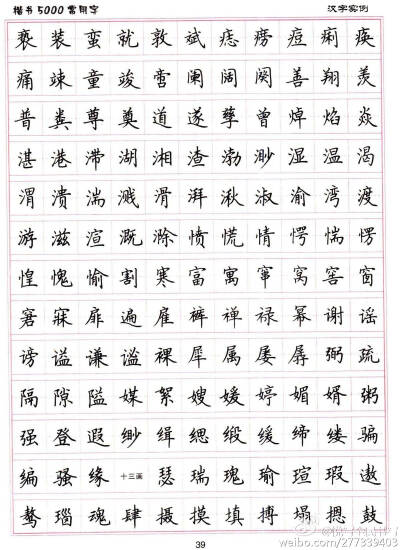 楷书5000常用字 汉字实例
亵 装 蛮 就 敦 斌 痣 痨 痘 痢 痪
痛 竦 童 竣 啻 阑 阔 阕 善 翔 羡
普 粪 尊 奠 道 遂 孳 曾 焯 焰 焱
湛 港 滞 湖 湘 渣 渤 渺 湿 温 渴
渭 溃 湍 溅 滑 湃 湫 淑 渝 湾 渡
游 滋 渲 溉 滁 愤 慌 情 愕 惴 愣
惶 愧 愉 割 寒 富 寓 窜 窝 窖 窗
窘 寐 扉 遍 雇 裤 禅 禄 幂 谢 谣
谤 谥 谦 谧 裸 犀 属 屡 孱 弼 疏
隔 隙 隘 媒 絮 嫂 媛 婷 媚 婿 粥
强 登 遐 缈 缉 缌 缎 缓 缔 缕 骗
编 骚 缘 十三画 瑟 瑞 瑰 瑜 瑄 瑕 遨
骜 瑙 魂 肆 摄 摸 填 搏 塌 摁 鼓
39
weibo.com/277339403